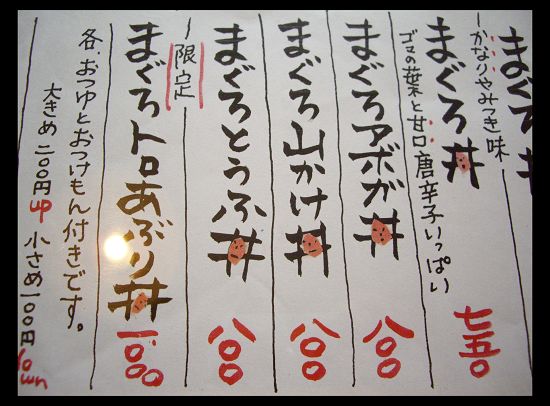 まぐろ丼
かなりやみつき味
まぐろ丼
ゴマの葉と甘口唐辛子いっぱい
七五〇
まぐろアボガ丼
八〇〇
まぐろ山かけ丼
八〇〇
まぐろとうふ丼
八〇〇
限定
まぐろトロあぶり丼
一、〇〇〇
各、おつゆとおつけもん付きです。
大きめ 二〇〇円up 小さめ 100円down